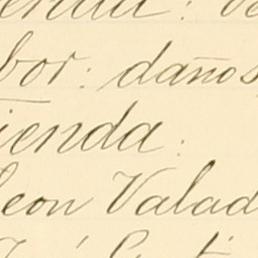 enda:
bor: daños
ienda:
Leon Valad